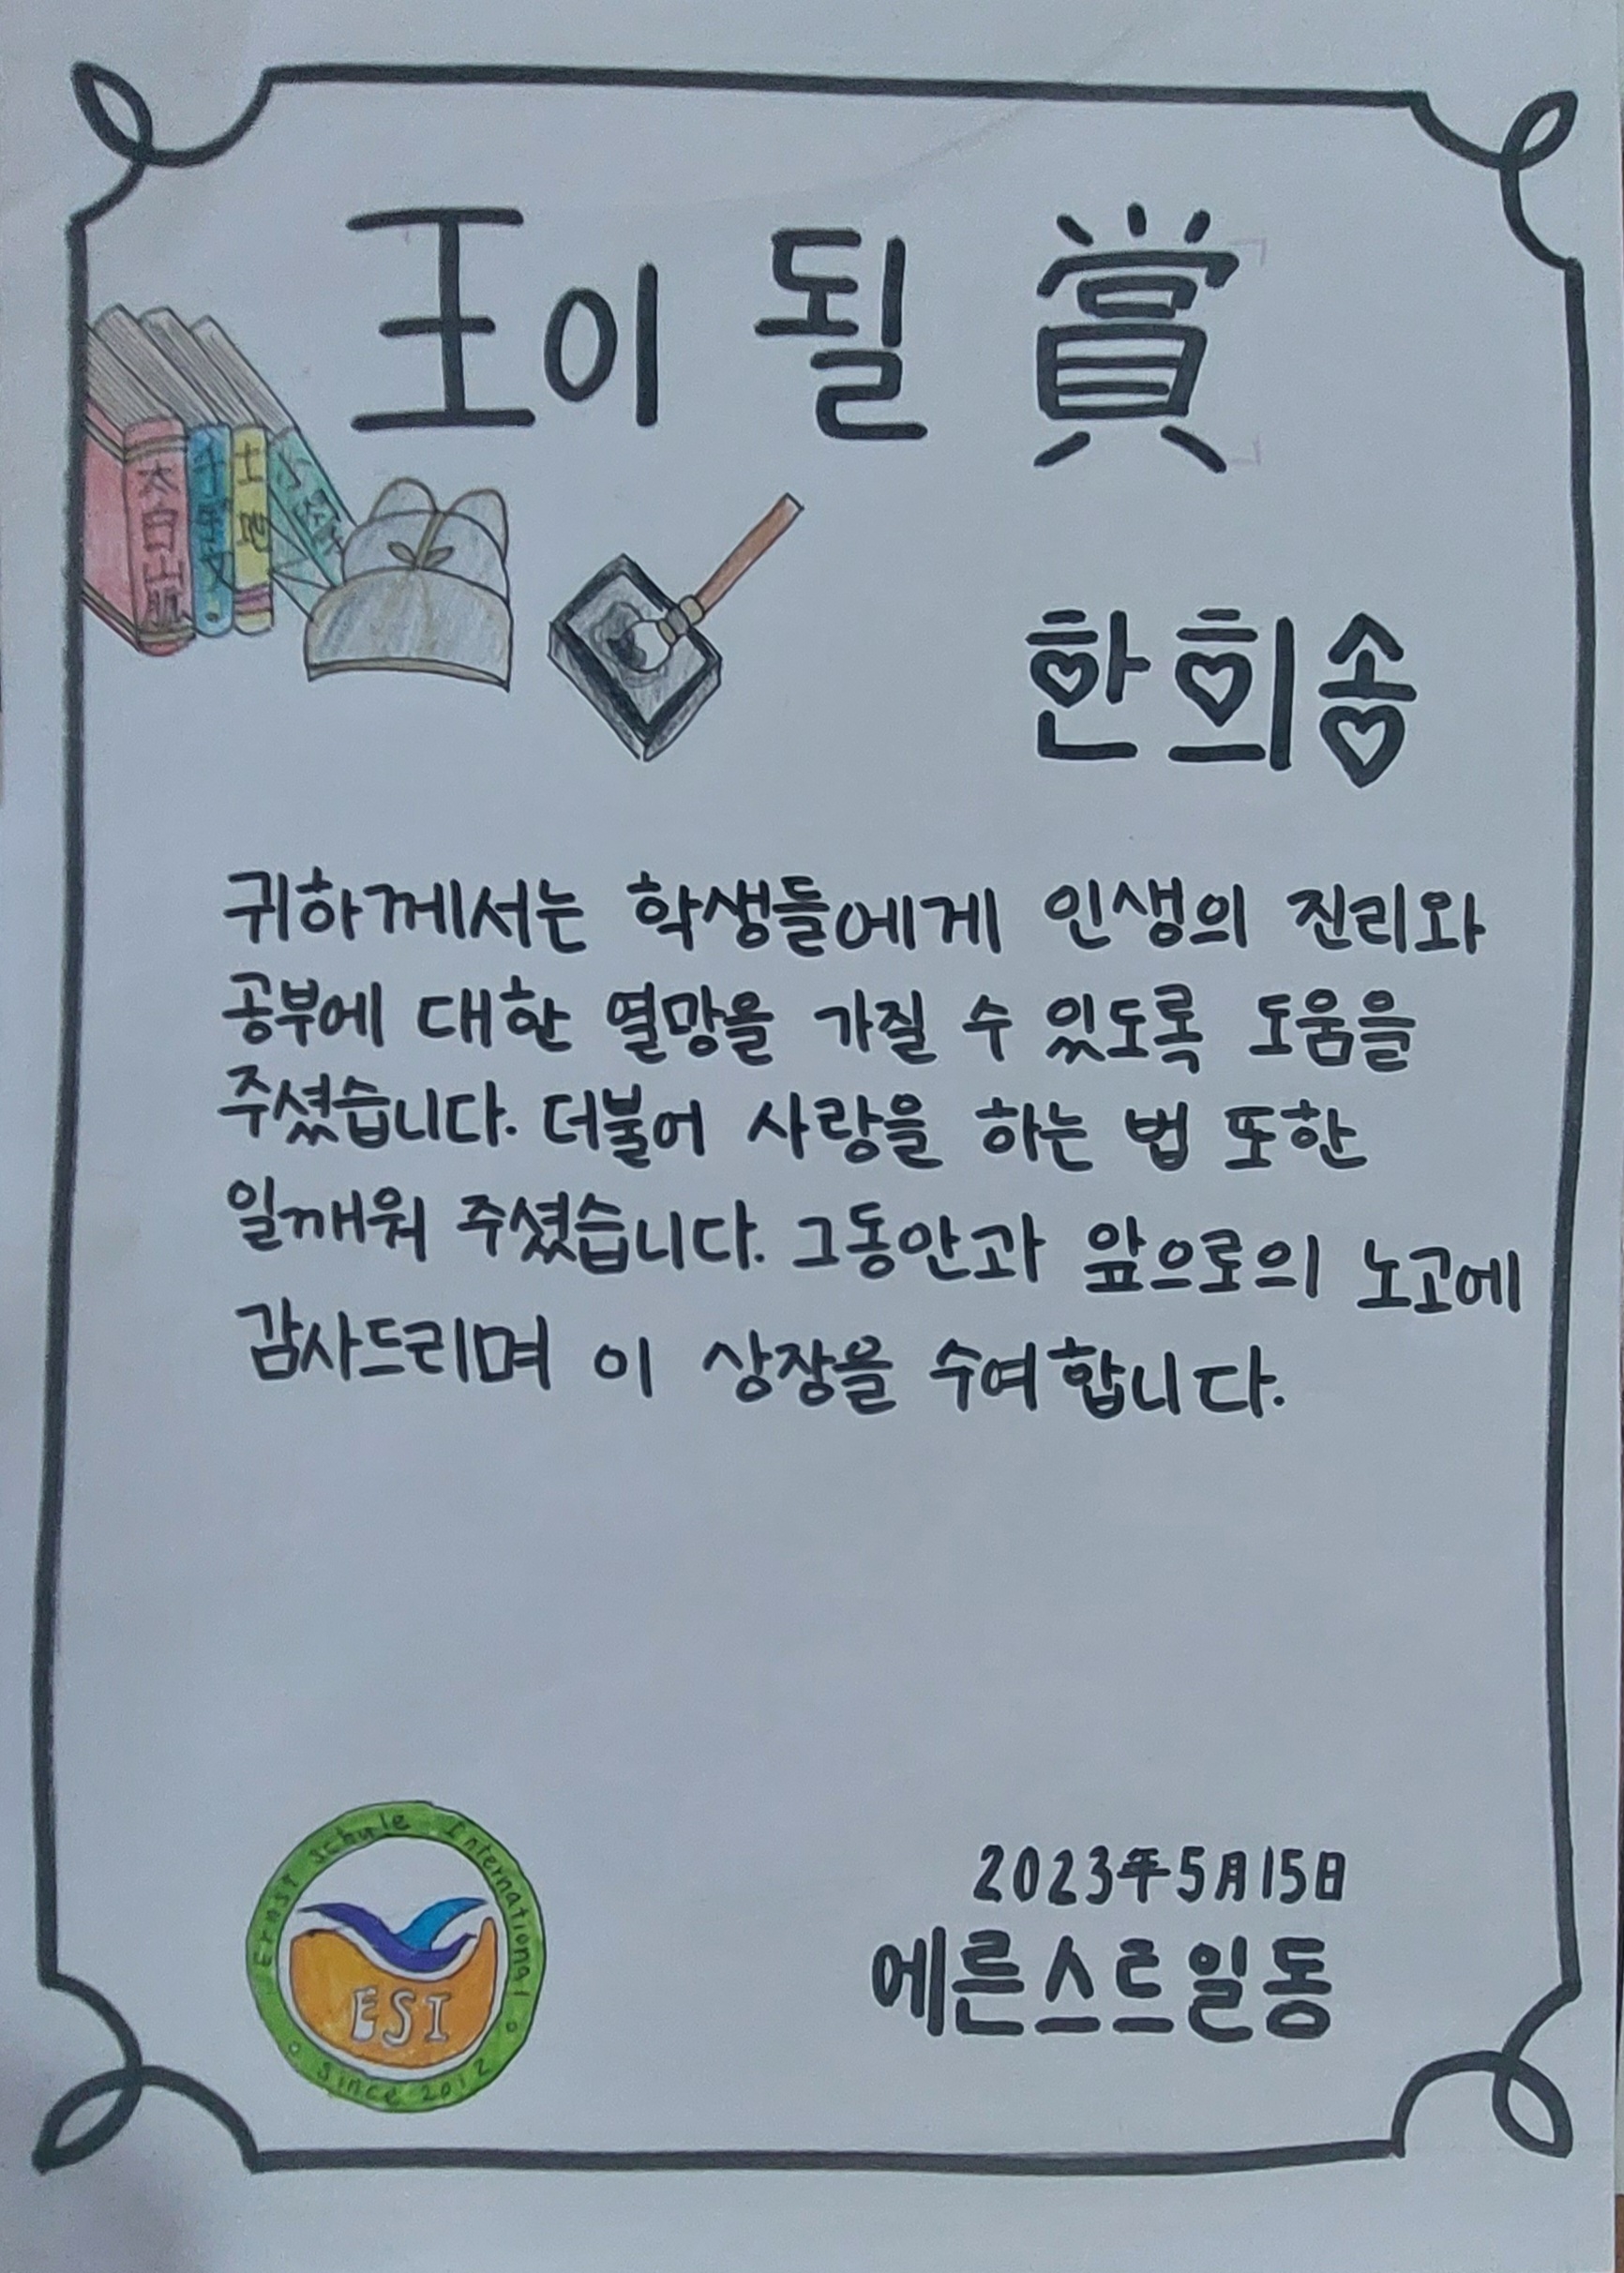 王이 될 賞
太白山脈
千字文
土地
한희송
귀하께서는 학생들에게 인생의 진리와
공부에 대한 열망을 가질 수 있도록 도움을
주셨습니다. 더불어 사랑을 하는 법 또한
일깨워 주셨습니다. 그동안과 앞으로의 노고에
감사드리며 이 상장을 수여합니다.
2023年5月15日
에른스트일동
Ernst Schule International
ESI
Since 2012